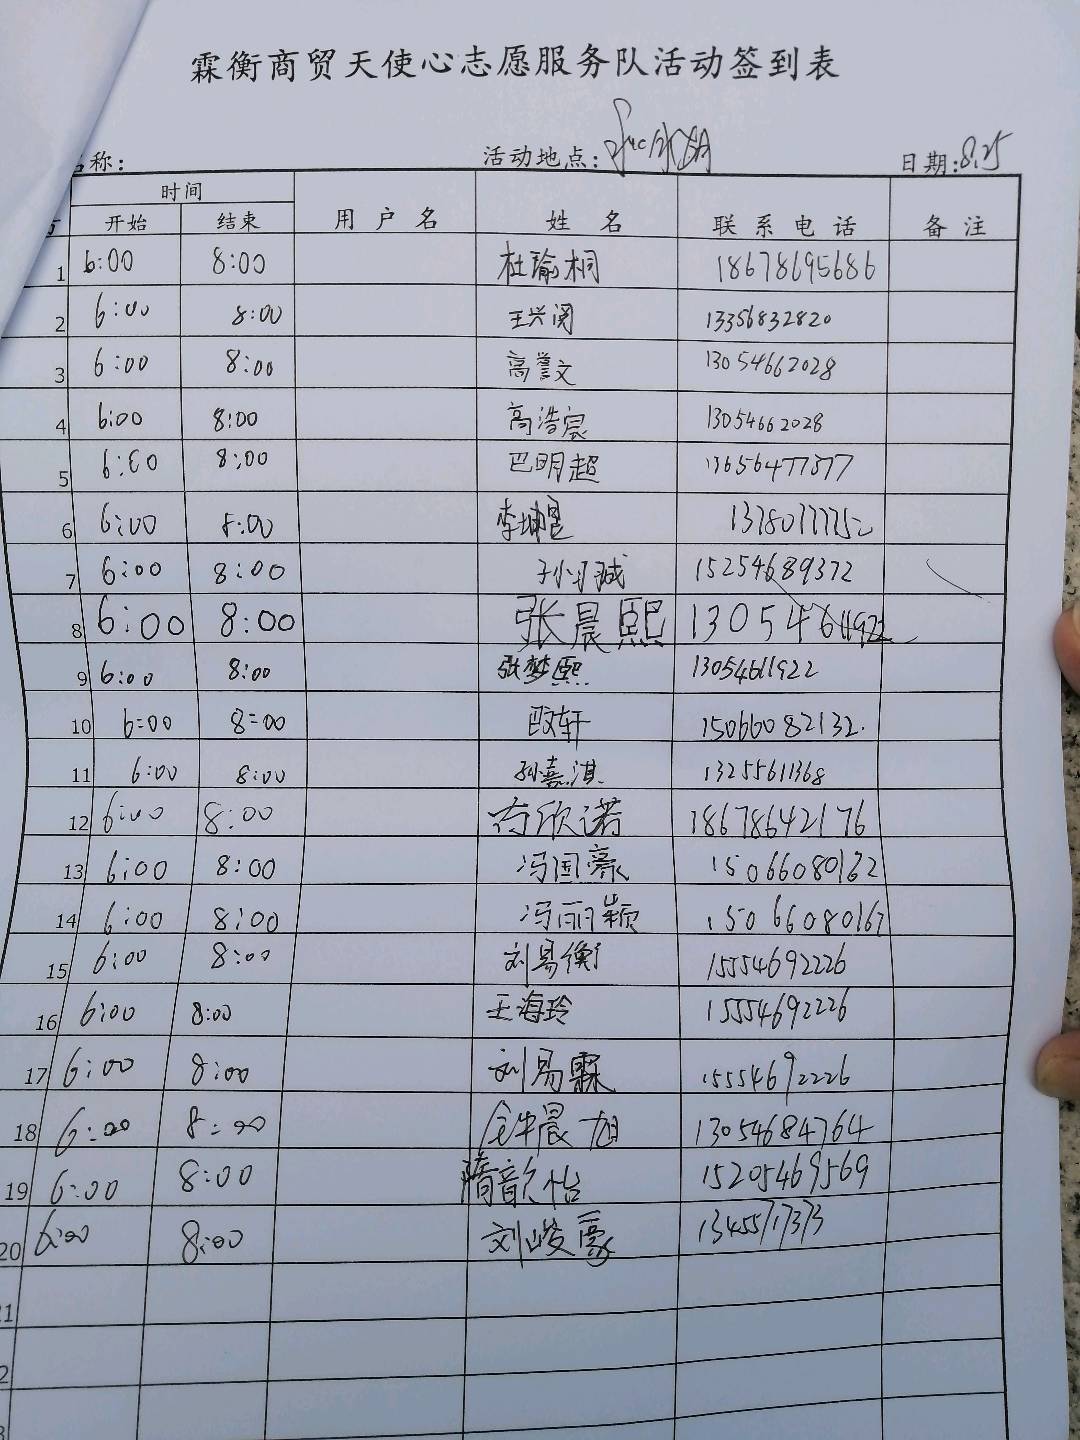 霖衡商贸天使心志愿服务队活动签到表
名称： 活动地点： 日期：8.25
时间
开始 结束 用 户 名 姓 名 联 系 电 话 备 注
1 6:00 8:00 杜瑜桐 18678695686
2 6:00 8:00 王兴阅 13356832820
3 6:00 8:00 高誉文 13054662028
4 6:00 8:00 高浩宸 13054662028
5 6:00 8:00 巴明超 13656477877
6 6:00 8:00
7 6:00 8:00 15254689372
8 6:00 8:00 张晨熙 13054611922
9 6:00 8:00 张梦熙 13054611922
10 6:00 8:00 15066082132.
11 6:00 8:00 孙嘉淇 13255611368
12 6:00 8:00 欣诺 18678642176
13 6:00 8:00 冯国豪 15066080162
14 6:00 8:00 冯丽颖 15066080162
15 6:00 8:00 刘易衡 15554692226
16 6:00 8:00 王海玲 15554692226
17 6:00 8:00 刘易霖 15554692226
18 6:00 8:00 晨旭 13054684764
19 6:00 8:00 隋歆怡 15205469569
20 6:00 8:00 刘峻豪 13455717373